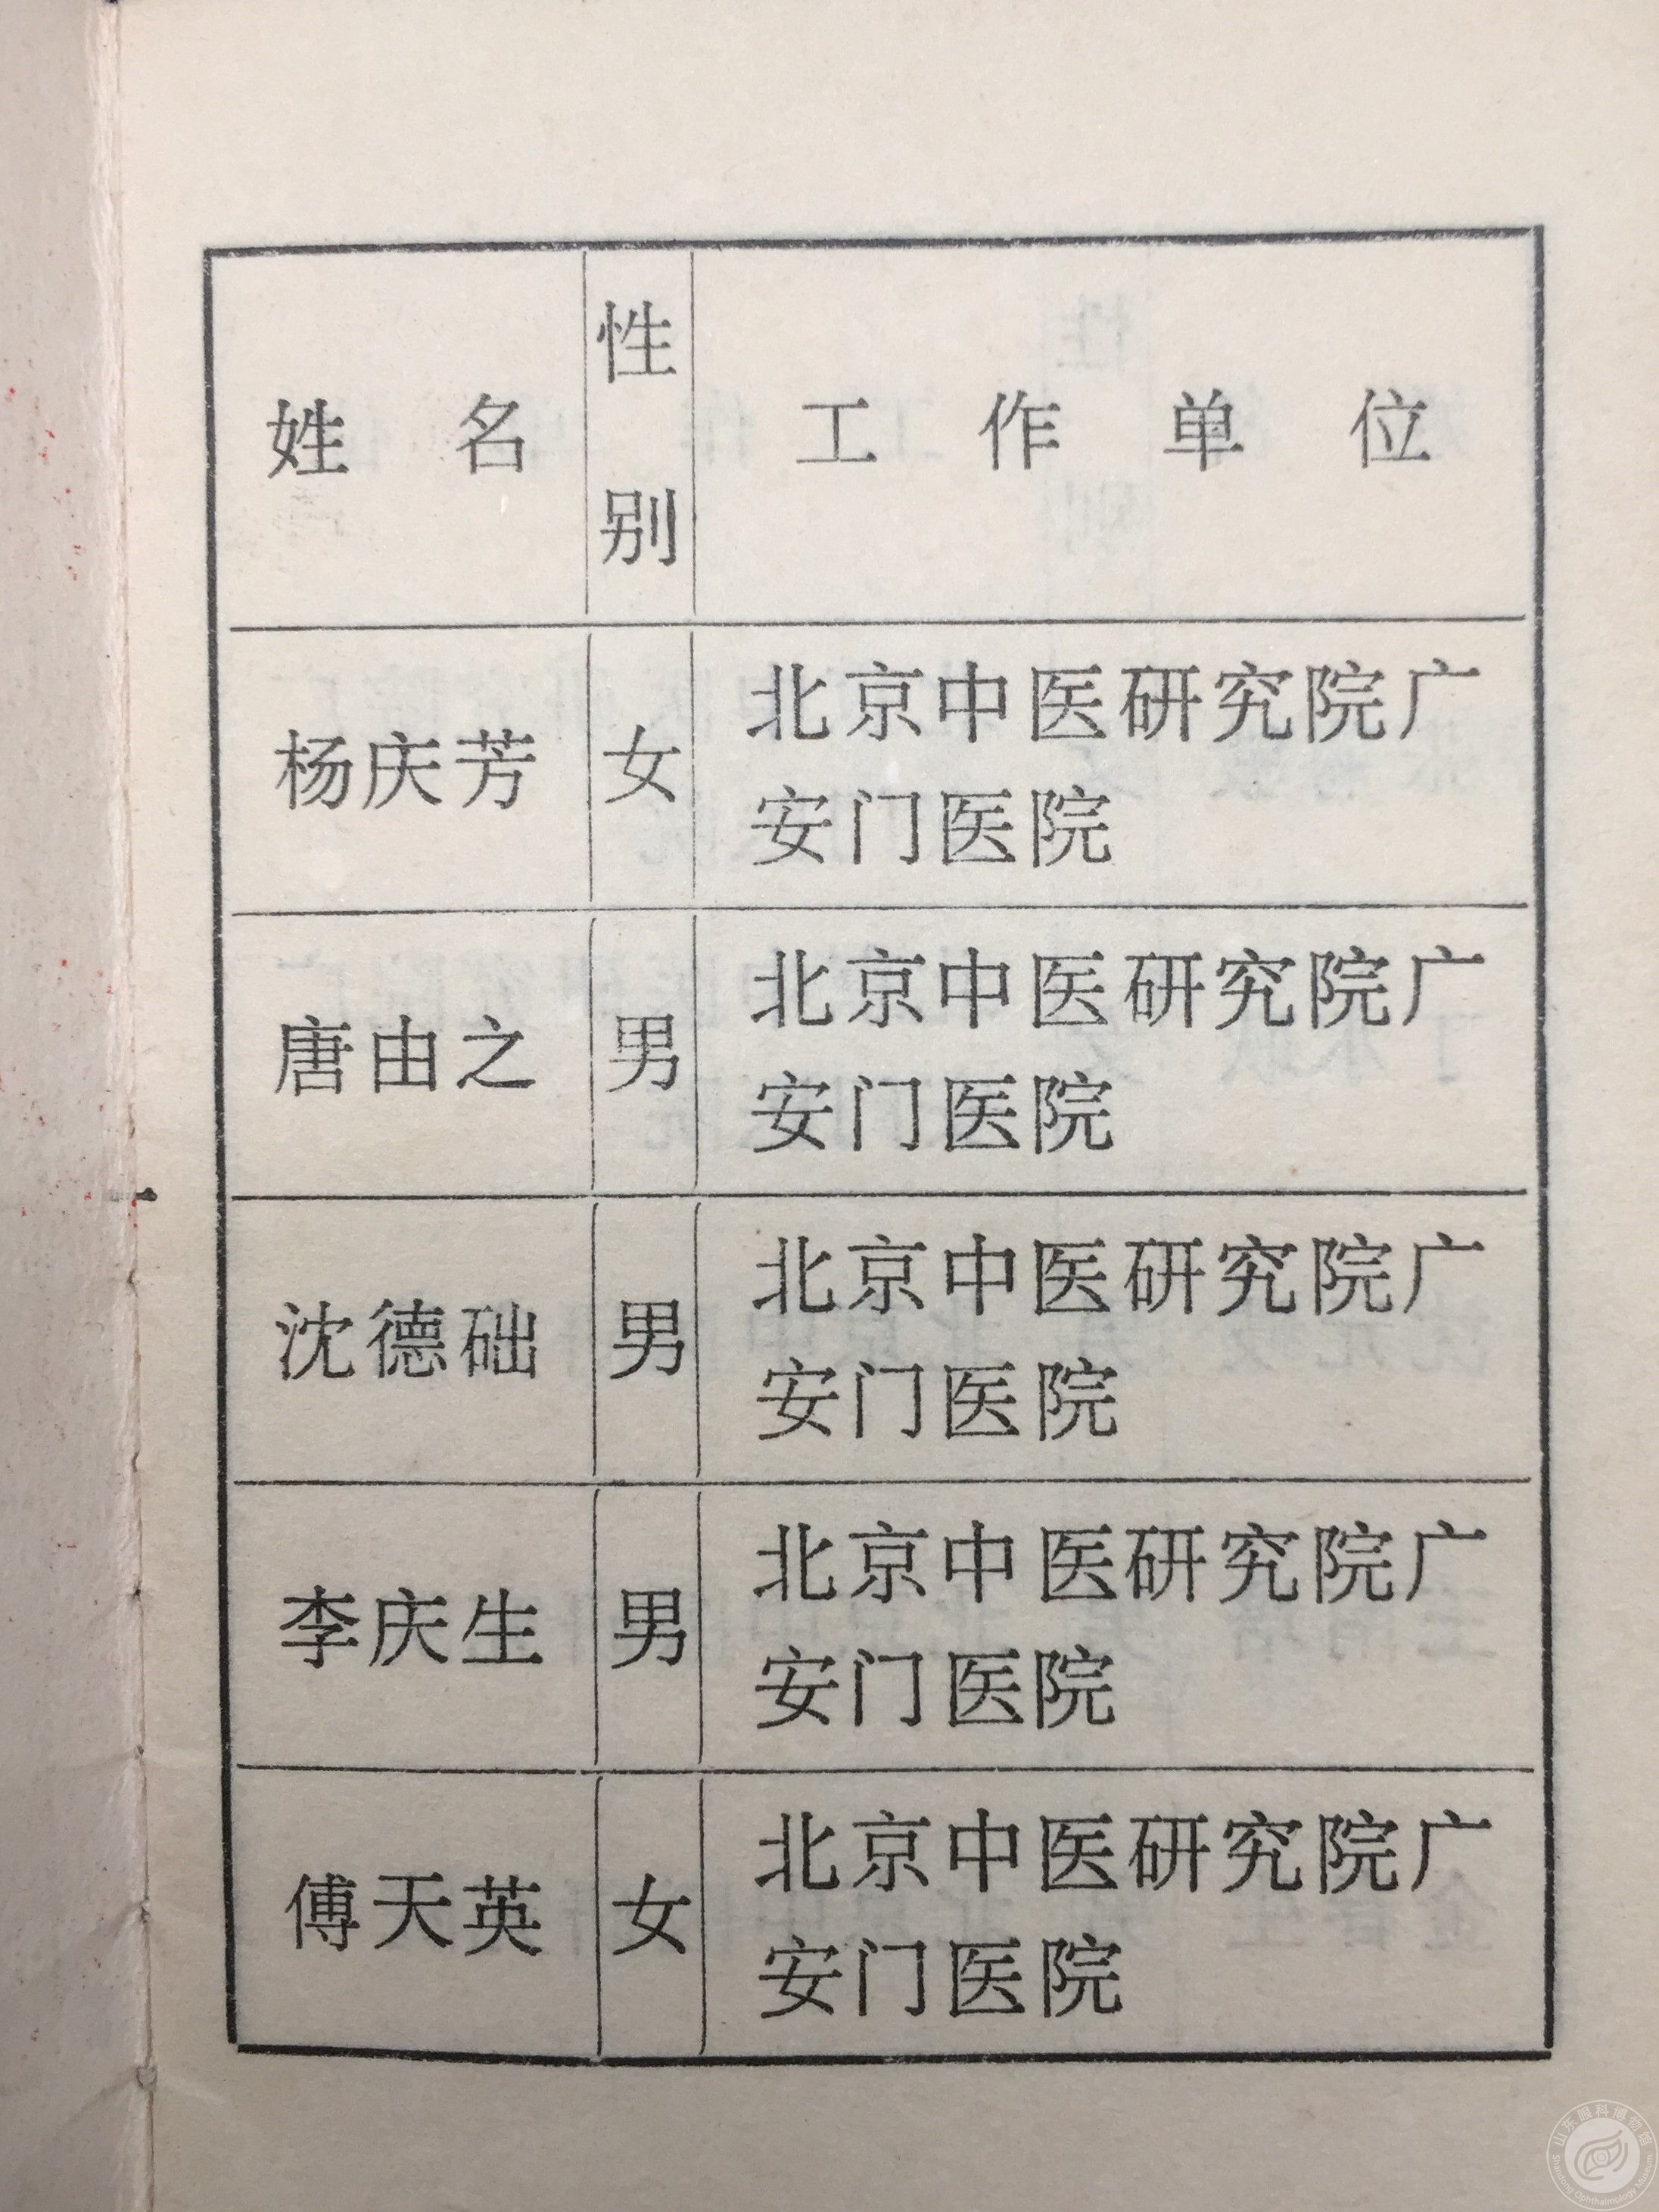 姓名 性别 工作单位
杨庆芳 女 北京中医研究院广
安门医院
唐由之 男 北京中医研究院广
安门医院
沈德础 男 北京中医研究院广
安门医院
李庆生 男 北京中医研究院广
安门医院
傅天英 女 北京中医研究院广
安门医院
山东眼科博物馆
Shandong Ophthalmology Museum